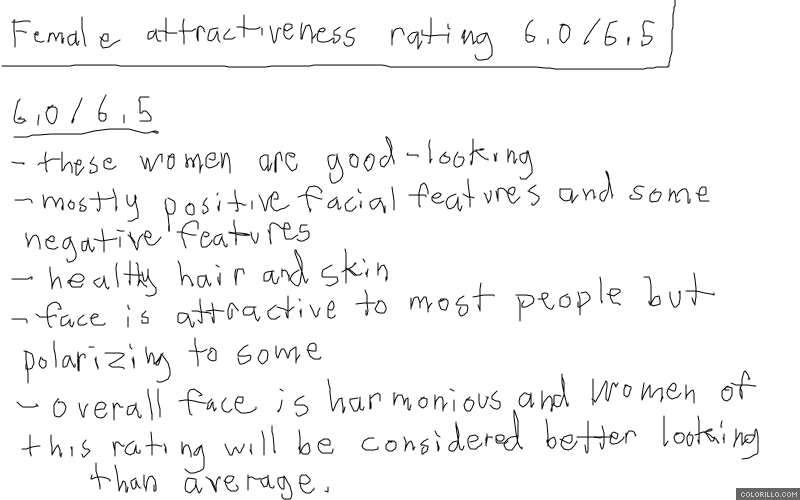 Female attractiveness rating 6.0/6.5
6.0/6.5
- these women are good-looking
- mostly positive facial features and some
negative features
- healthy hair and skin
- face is attractive to most people but
polarizing to some
- overall face is harmonious and women of
this rating will be considered better looking
than average.
COLORILLO.COM